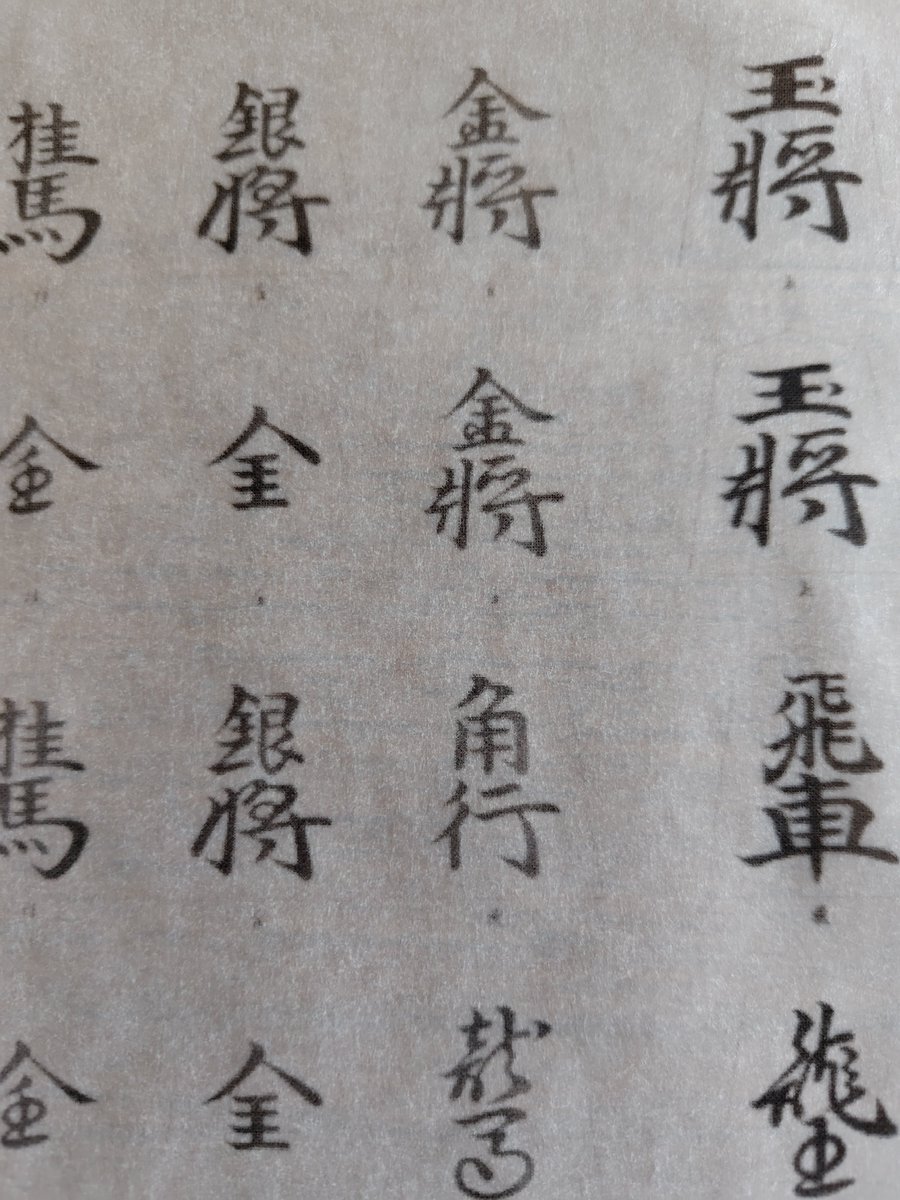 玉將
金將
銀将
桂馬
玉將
金將
全
全
飛車
角行
銀将
桂馬
龍王
龍馬
全
全